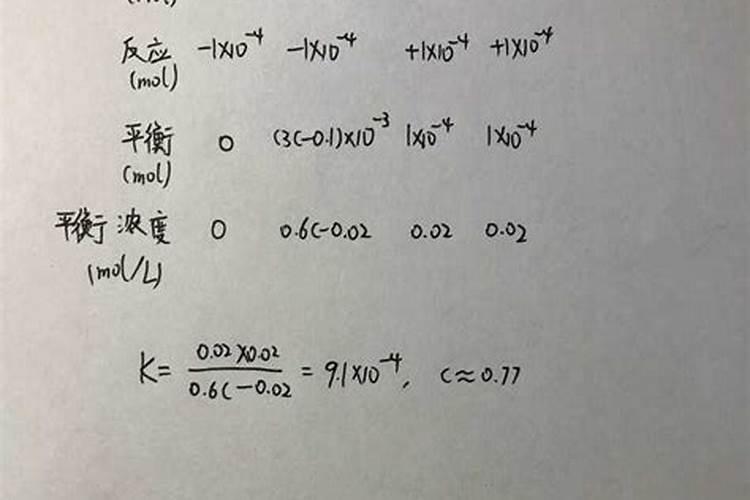 反应 -1×10⁻⁴ -1×10⁻⁴ +1×10⁻⁴ +1×10⁻⁴
(mol)
平衡 0 (3C-0.1)×10⁻³ 1×10⁻⁴ 1×10⁻⁴
(mol)
平衡浓度 0 0.6C-0.02 0.02 0.02
(mol/L)
K= 0.02×0.02 / 0.6C-0.02 = 9.1×10⁻⁴, C≈0.77